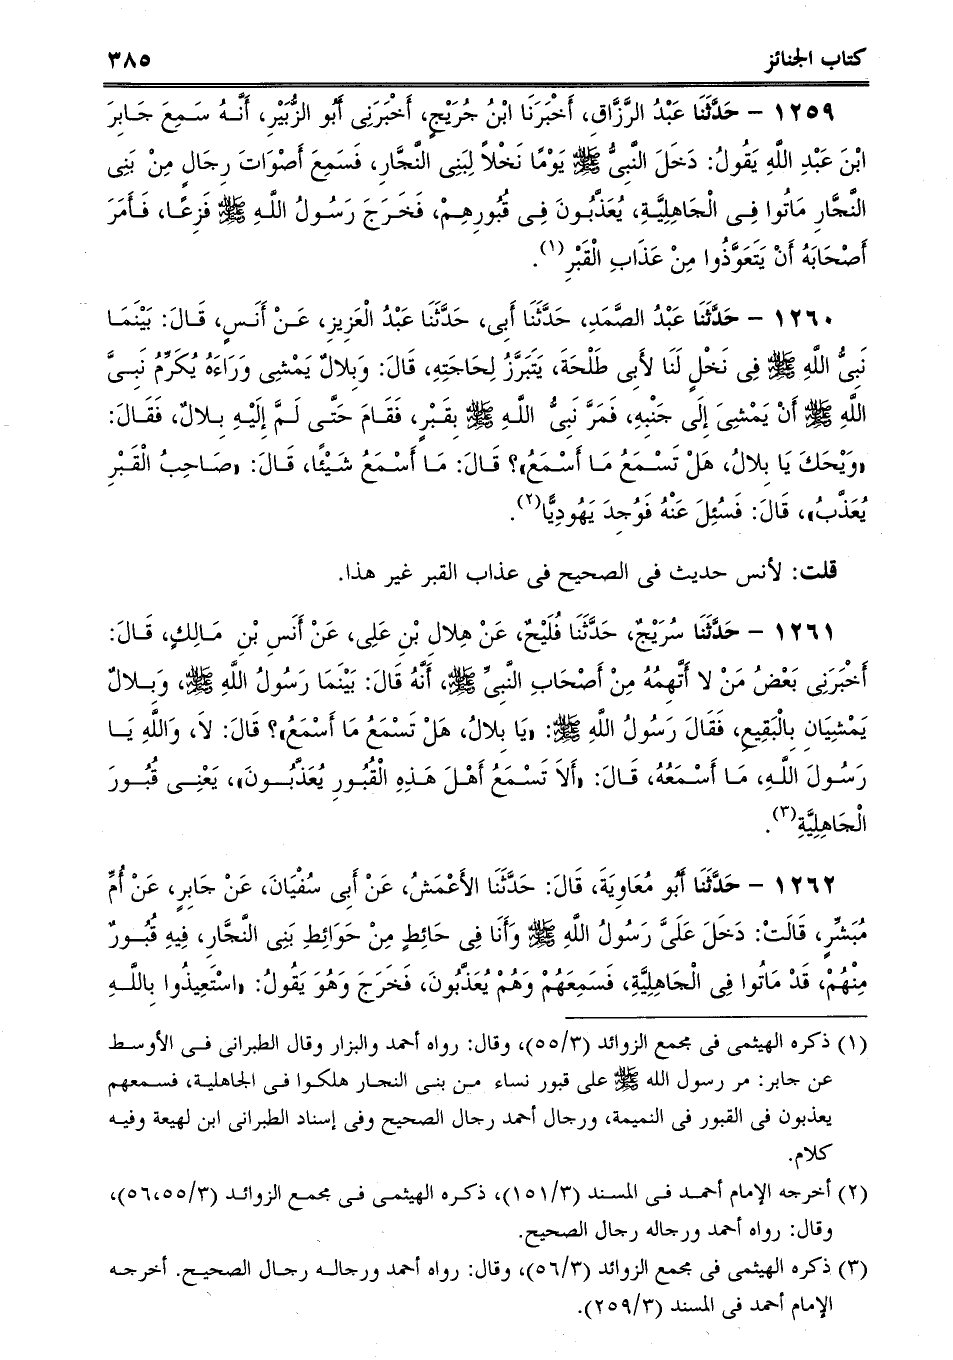 كتاب الجنائز ٣٨٥
١٢٥٩ - حَدَّثَنَا عَبْدُ الرَّزَّاقِ، أَخْبَرَنَا ابْنُ جُرَيْجٍ، أَخْبَرَنِى أَبُو الزُّبَيْرِ، أَنَّهُ سَمِعَ جَابِرَ
ابْنَ عَبْدِ اللَّهِ يَقُولُ: دَخَلَ النَّبِىُّ ﷺ يَوْمًا نَخْلاً لِبَنِى النَّجَّارِ، فَسَمِعَ أَصْوَاتَ رِجَالٍ مِنْ بَنِى
النَّجَّارِ مَاتُوا فِى الْجَاهِلِيَّةِ، يُعَذَّبُونَ فِى قُبُورِهِمْ، فَخَرَجَ رَسُولُ اللَّهِ ﷺ فَزِعًا، فَأَمَرَ
أَصْحَابَهُ أَنْ يَتَعَوَّذُوا مِنْ عَذَابِ الْقَبْرِ(١).
١٢٦٠ - حَدَّثَنَا عَبْدُ الصَّمَدِ، حَدَّثَنَا أَبِى، حَدَّثَنَا عَبْدُ الْعَزِيزِ، عَنْ أَنَسٍ، قَالَ: بَيْنَمَا
نَبِىُّ اللَّهِ ﷺ فِى نَخْلٍ لَنَا لأَبِى طَلْحَةَ، يَتَبَرَّزُ لِحَاجَتِهِ، قَالَ: وَبِلالٌ يَمْشِى وَرَاءَهُ يُكَرِّمُ نَبِىَّ
اللَّهِ ﷺ أَنْ يَمْشِىَ إِلَى جَنْبِهِ، فَمَرَّ نَبِىُّ اللَّهِ ﷺ بِقَبْرٍ، فَقَامَ حَتَّى لَمَّ إِلَيْهِ بِلالٌ، فَقَالَ:
«وَيْحَكَ يَا بِلالُ، هَلْ تَسْمَعُ مَا أَسْمَعُ»؟ قَالَ: مَا أَسْمَعُ شَيْئًا، قَالَ: «صَاحِبُ الْقَبْرِ
يُعَذَّبُ»، قَالَ: فَسُئِلَ عَنْهُ فَوُجِدَ يَهُودِيًّا(٢).
قلت: لأنس حديث فى الصحيح فى عذاب القبر غير هذا.
١٢٦١ - حَدَّثَنَا سُرَيْجٌ، حَدَّثَنَا فُلَيْحٌ، عَنْ هِلالِ بْنِ عَلِى، عَنْ أَنَسِ بْنِ مَالِكٍ، قَالَ:
أَخْبَرَنِى بَعْضُ مَنْ لا أَتَّهِمُهُ مِنْ أَصْحَابِ النَّبِىِّ ﷺ، أَنَّهُ قَالَ: بَيْنَمَا رَسُولُ اللَّهِ ﷺ، وَبِلالٌ
يَمْشِيَانِ بِالْبَقِيعِ، فَقَالَ رَسُولُ اللَّهِ ﷺ: «يَا بِلالُ، هَلْ تَسْمَعُ مَا أَسْمَعُ»؟ قَالَ: لاَ، وَاللَّهِ يَا
رَسُولَ اللَّهِ، مَا أَسْمَعُهُ، قَالَ: «أَلاَ تَسْمَعُ أَهْلَ هَذِهِ الْقُبُورِ يُعَذَّبُونَ»، يَعْنِى قُبُورَ
الْجَاهِلِيَّةِ(٣).
١٢٦٢ - حَدَّثَنَا أَبُو مُعَاوِيَةَ، قَالَ: حَدَّثَنَا الأَعْمَشُ، عَنْ أَبِى سُفْيَانَ، عَنْ جَابِرٍ، عَنْ أُمِّ
مُبَشِّرٍ، قَالَتْ: دَخَلَ عَلَىَّ رَسُولُ اللَّهِ ﷺ وَأَنَا فِى حَائِطٍ مِنْ حَوَائِطِ بَنِى النَّجَّارِ، فِيهِ قُبُورٌ
مِنْهُمْ، قَدْ مَاتُوا فِى الْجَاهِلِيَّةِ، فَسَمِعَهُمْ وَهُمْ يُعَذَّبُونَ، فَخَرَجَ وَهُوَ يَقُولُ: «اسْتَعِيذُوا بِاللَّهِ
(١) ذكره الهيثمى فى مجمع الزوائد (٥٥/٣)، وقال: رواه أحمد والبزار وقال الطبرانى فى الأوسط
عن جابر: مر رسول الله ﷺ على قبور نساء من بنى النجار هلكوا فى الجاهلية، فسمعهم
يعذبون فى القبور فى النميمة، ورجال أحمد رجال الصحيح وفى إسناد الطبرانى ابن لهيعة وفيه
كلام.
(٢) أخرجه الإمام أحمد فى المسند (١٥١/٣)، ذكره الهيثمى فى مجمع الزوائد (٥٦،٥٥/٣)،
وقال: رواه أحمد ورجاله رجال الصحيح.
(٣) ذكره الهيثمى فى مجمع الزوائد (٥٦/٣)، وقال: رواه أحمد ورجاله رجال الصحيح. أخرجه
الإمام أحمد فى المسند (٢٥٩/٣).